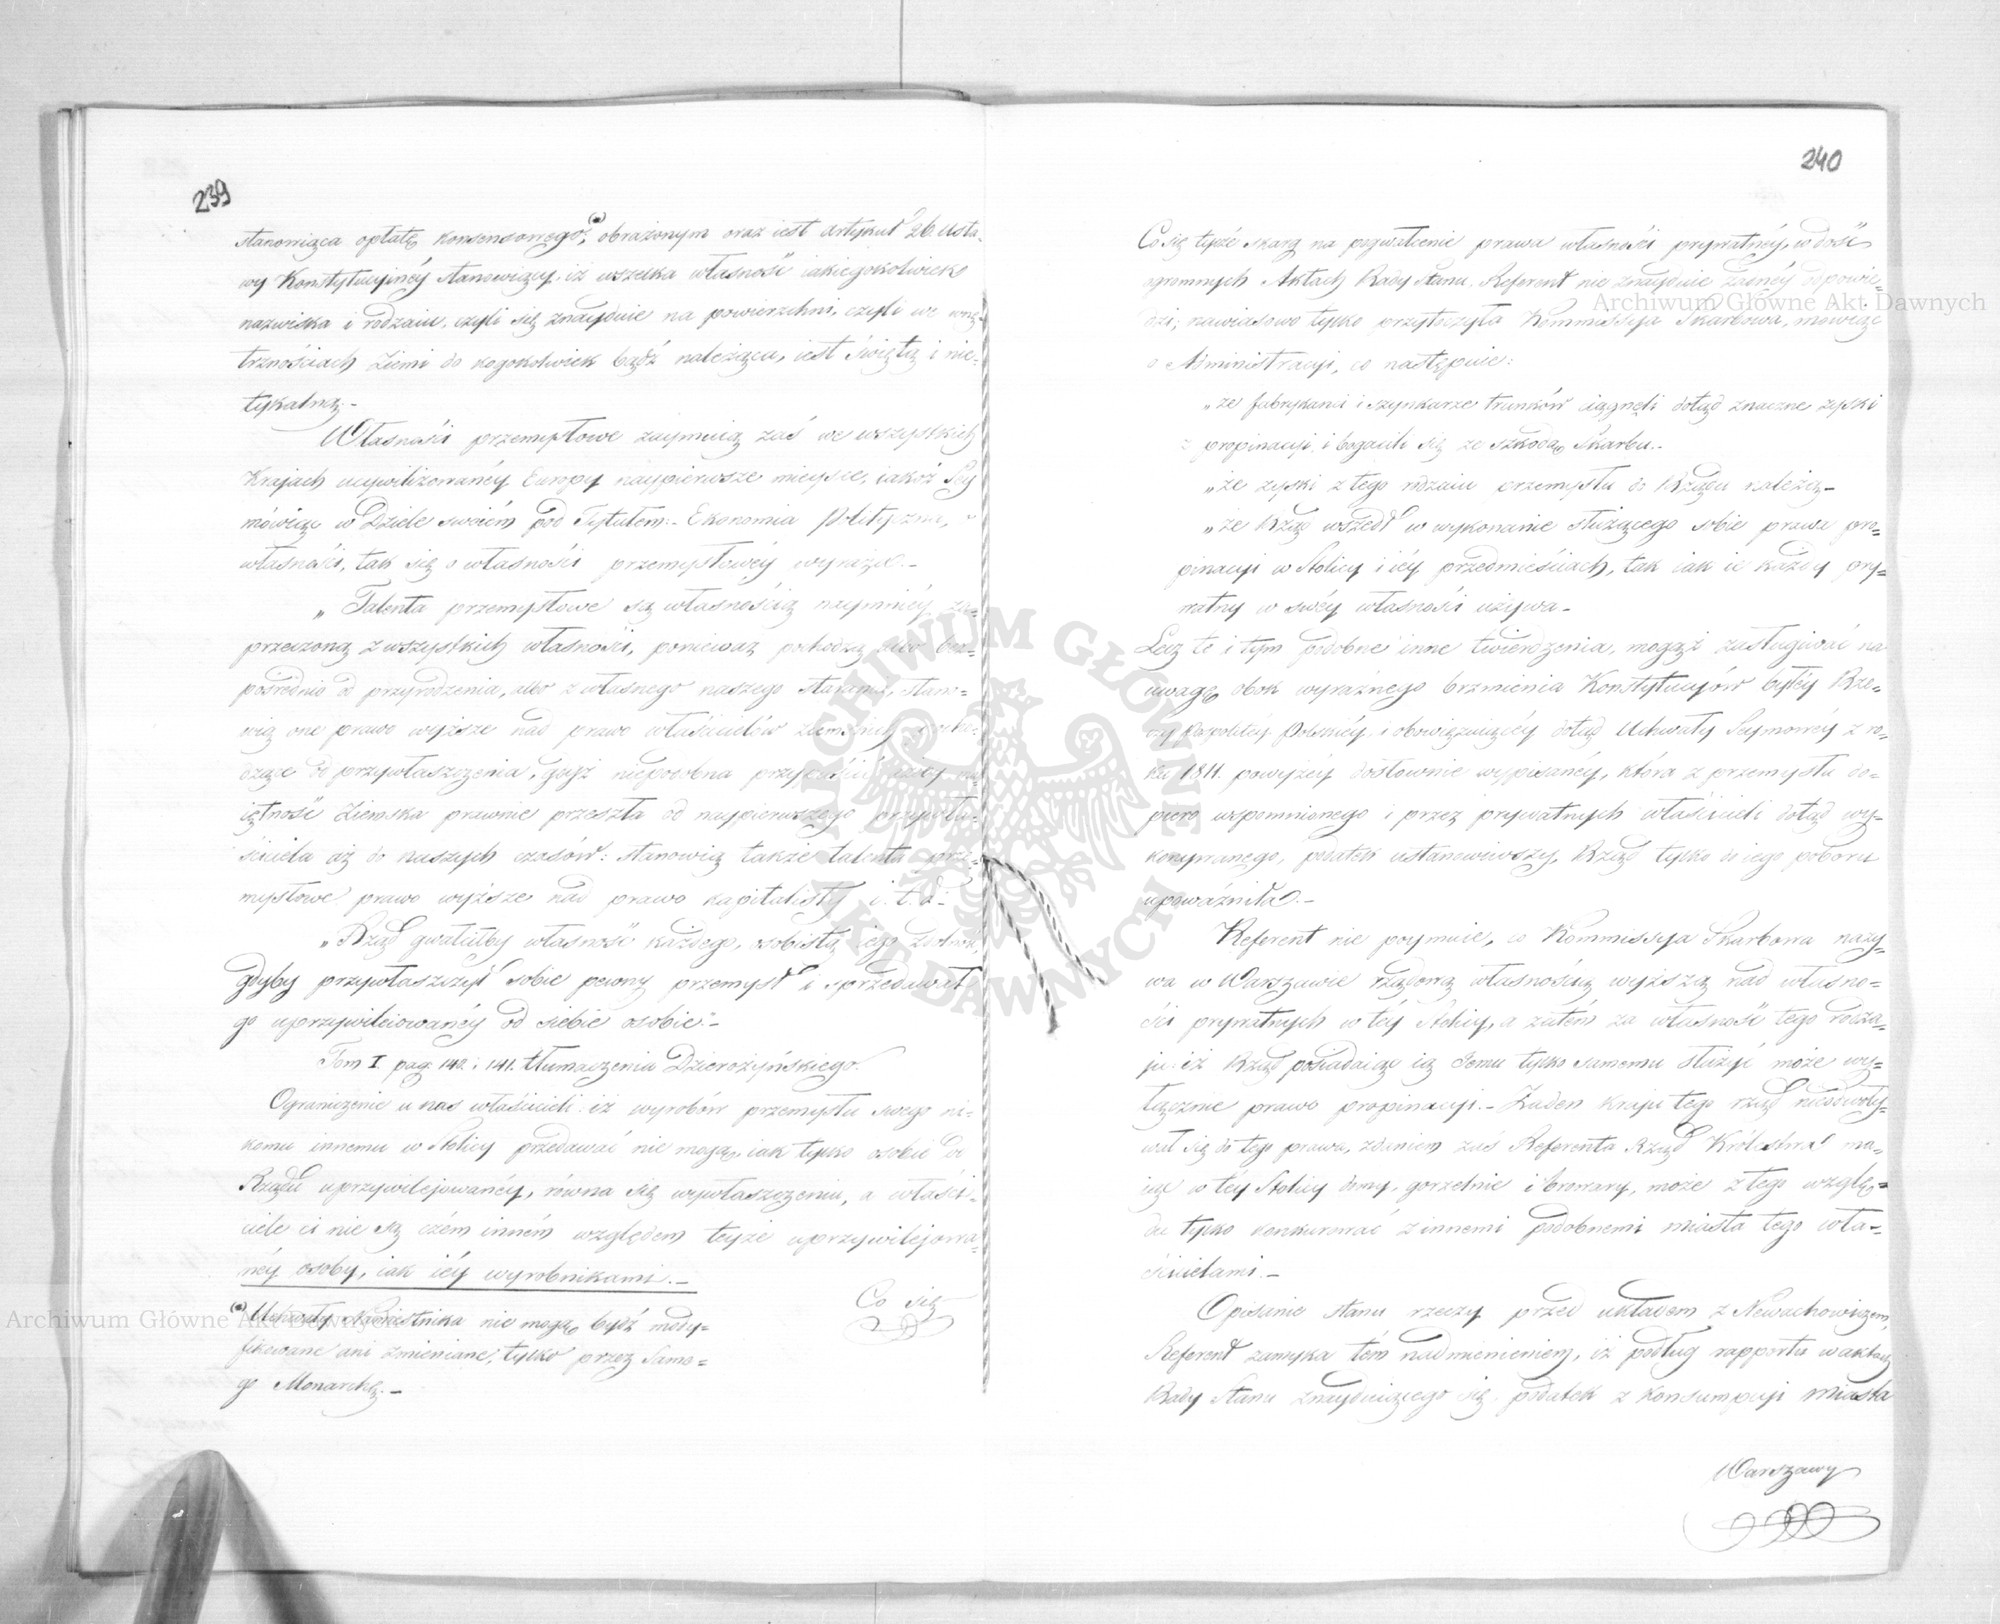 239
stanowiąca opłatę konsensowego, (*) obrażonym oraz iest Artykuł 26. Usta-
wy Konstytucyinéy stanowiący, iż wszelka własność iakiegokolwiek
nazwiska i rodzaiu, czyli się znayduie na powierzchni, czyli we wnę-
trznościach Ziemi do kogokolwiek bądź należąca, iest świętą i nie-
tykalną.-
Własności przemysłowe zaymuią zaś we wszystkich
Krajach ucywilizowanéy Europy naypierwsze mieysce, iakoż Sey
mówiąc w Dziele swoiém pod Tytułem:- Ekonomia Polityczna, o
własności, tak się o własności przemysłowéy wyraża.-
„Talenta przemysłowe są własnością naymniéy za-
przeczoną z wszystkich własności, ponieważ pochodzą albo bez-
pośrednio od przyrodzenia, albo z własnego naszego starania, stano-
wią one prawo wyższe nad prawo właścicielów ziemskich pocho-
dzące od przywłaszczenia, gdyż niepodobna przypuścić iżby ma-
iętność Ziemska prawnie przeszła od naypierwszego przywła-
ściciela aż do naszych czasów: stanowią także talenta prze-
mysłowe prawo wyższe nad prawo kapitalisty i.t.d.-
„Rząd gwałciłby własność każdego, osobistą iego zdolność,
gdyby przywłaszczył sobie pewny przemysł i sprzedawał
go uprzywileiowanéy od siebie osobie."-
Tom I. pag: 140. i 141. tłumaczenia Dzierożyńskiego.
Ograniczenie u nas właścicieli: iż wyrobów przemysłu swego ni-
komu innemu w Stolicy przedawać nie mogą, iak tylko osobie od
Rządu uprzywilejowanéy, równa się wywłaszczeniu, a właści-
ciele ci nie są czém inném względem teyże uprzywilejowa-
néy osoby, iak iéy wyrobnikami.-
(*) Uchwały Namiestnika nie mogą bydź mody-
fikowane ani zmieniane, tylko przez Same-
go Monarchę.-
Co się
240
Co się tycze skarg na pogwałcenie prawa własności prywatnéy, w dość
ogromnych Aktach Rady Stanu, Referent nie znayduie żadnéy odpowie-
dzi; nawiasowo tylko przytoczyła Kommissyja Skarbowa, mówiąc
o Administracyi, co następuie:
„że fabrykanci i szynkarze trunków ciągnęli dotąd znaczne zyski
z propinacyi, i bogacili się ze szkodą Skarbu.-
„że zyski z tego rodzaiu przemysłu do Rządu należą-
„że Rząd wszedł w wykonanie służącego sobie prawa pro-
pinacyi w Stolicy i iéy przedmieściach, tak iak ie każdy pry-
watny w swéy własności używa-
Lecz te i tym podobne inne twierdzenia, mogąż zasługiwać na
uwagę obok wyraźnego brzmienia Konstytucyów byłéy Rze-
czy Pospolitéy Polskiéy, i obowiązuiącéy dotąd Uchwały Seymowéy z ro-
ku 1811. powyżéy dosłownie wypisanéy, która z przemysłu do-
piero wspomnionego i przez prywatnych właścicieli dotąd wy-
konywanego, podatek ustanowiwszy, Rząd tylko do iego poboru
upoważniła.-
Referent nie poymuie, co Kommissyja Skarbowa nazy-
wa w Warszawie rządową własnością wyższą nad własno-
ści prywatnych w téy Stolicy, a zatém za własność tego rodza-
ju iż Rząd posiadaiąc ią Jemu tylko samemu służyć może wy-
łącznie prawo propinacyi.- Żaden kraju tego rząd nieodwoły-
wał się do tego prawa, zdaniem zaś Referenta Rząd Królestwa ma-
iąc w téy Stolicy domy, gorzelnie i browary, może z tego wzglę-
du tylko konkurować z innemi podobnemi miasta tego wła-
ścicielami.-
Opisanie stanu rzeczy przed układem z Newachowiczem,
Referent zamyka tém nadmienieniem, iż podług rapportu w aktach
Rady Stanu znayduiącego się, podatek z konsumpcyi miasta
Warszawy
Archiwum Główne Akt Dawnych
Archiwum Główne Akt Dawnych
ARCHIWUM GŁÓWNE AKT DAWNYCH